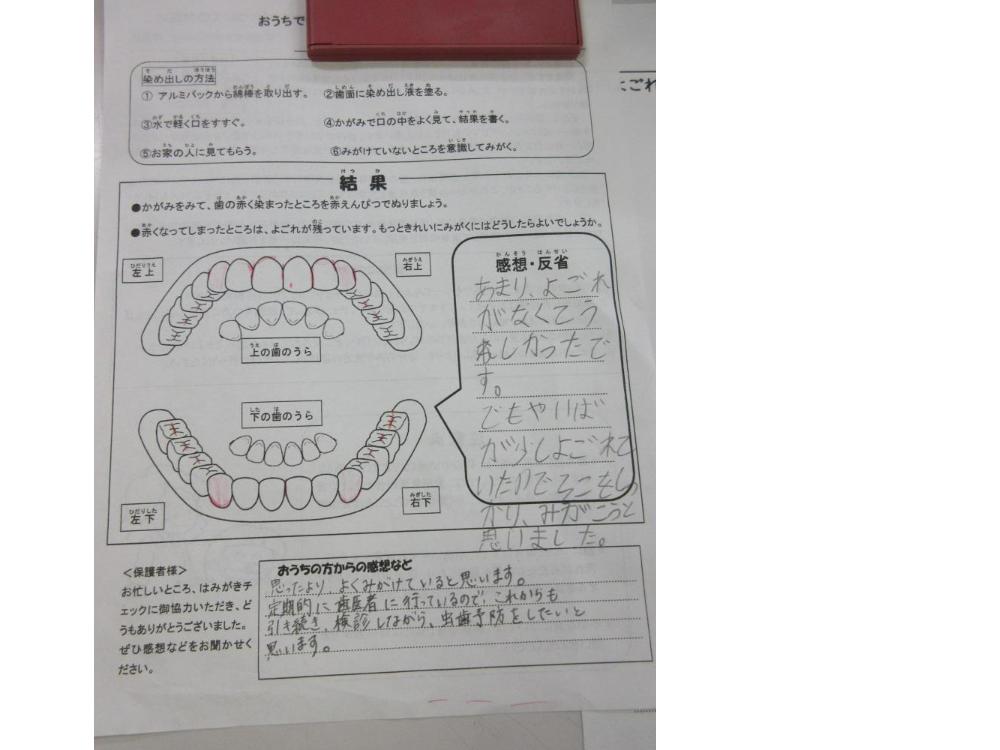 おうちで
ごれ
染め出しの方法
① アルミパックから綿棒を取り出す。 ②歯面に染め出し液を塗る。
③水で軽く口をすすぐ。 ④かがみで口の中をよく見て、結果を書く。
⑤お家の人に見てもらう。 ⑥みがけていないところを意識してみがく。
結果
●かがみをみて、歯の赤く染まったところを赤えんぴつでぬりましょう。
●赤くなってしまったところは、よごれが残っています。もっときれいにみがくにはどうしたらよいでしょうか。
左上
右上
上の歯のうら
下の歯のうら
左下
右下
感想・反省
あまり、よごれ
がなくてう
れしかったで
す。
でもやいば
が少しよごれて
いたのでそこをしっ
かり、みがこうと
思いました。
＜保護者様＞
お忙しいところ、はみがきチ
ェックに御協力いただき、ど
うもありがとうございました。
ぜひ感想などをお聞かせく
ださい。
おうちの方からの感想など
思ったより、よくみがけていると思います。
定期的に歯医者に行っているので、これからも
引き続き、検診しながら、虫歯予防をしたいと
思います。